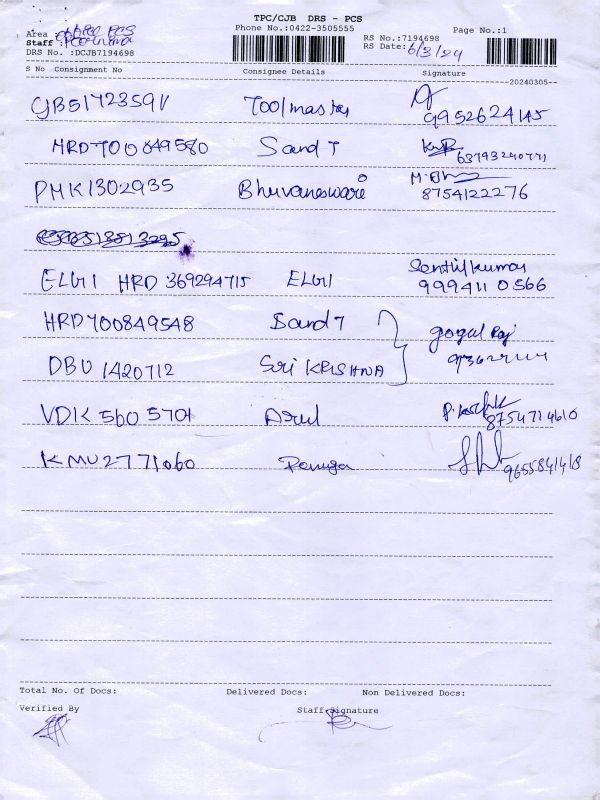 TPC/CJB DRS - PCS
Phone No.:0422-3505555
Page No.:1
RS No.:7194698
RS Date: 6/3/24
Area
Staff
DRS No. :DCJB7194698
S No Consignment No Consignee Details Signature
20240305--
CJB51723591 Toolmaster 9952624145
HRD700849580 Sand T
PMK1302935 Bhuvaneswari 8754122276
ELGI HRD 369294715 ELGI Senthilkumar 9994110566
HRD700849548 Sand T
DBU 1420712 Sri KRISHNA
VDK 560 5701 Arul 8754714610
KMU2771060 9655841418
Total No. Of Docs: Delivered Docs: Non Delivered Docs:
Verified By Staff Signature